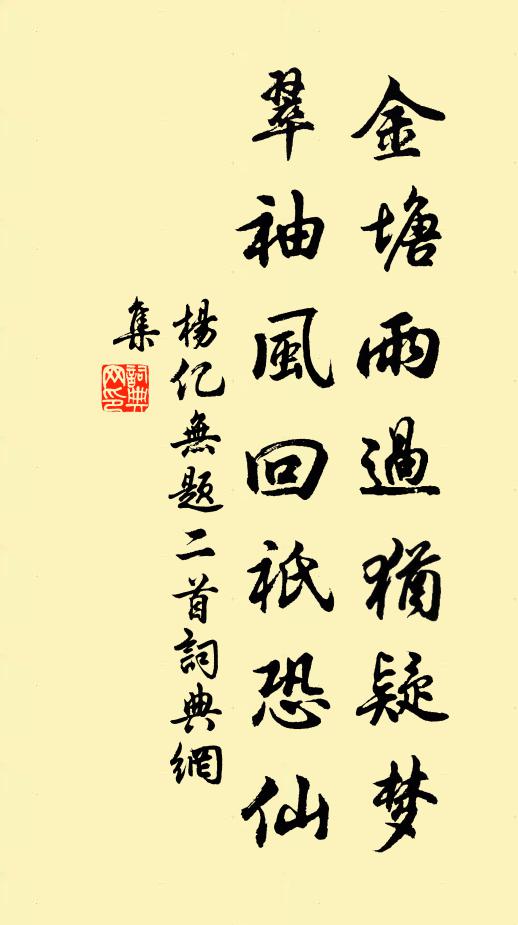 金塘雨過猶疑梦
翠袖風回祇恐仙
楊亿無题二首詞典網
集
詞典
网印